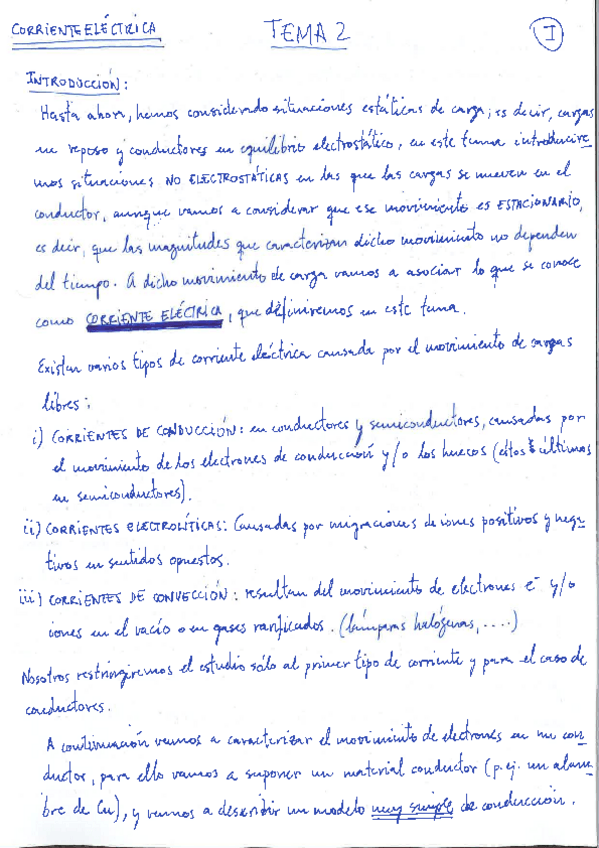 CORRIENTE ELÉCTRICA
TEMA 2
I
INTRODUCCIÓN:
Hasta ahora, hemos considerado situaciones estáticas de carga; es decir, cargas
en reposo y conductores en equilibrio electrostático, en este tema introducire
mos situaciones NO ELECTROSTÁTICAS en las que las cargas se mueven en el
conductor, aunque vamos a considerar que ese movimiento es ESTACIONARIO,
es decir, que las magnitudes que caracterizan dicho movimiento no dependen
del tiempo. A dicho movimiento de carga vamos a asociar lo que se conoce
como CORRIENTE ELÉCTRICA, que definiremos en este tema.
Existen varios tipos de corriente eléctrica causada por el movimiento de cargas
libres:
i) CORRIENTES DE CONDUCCIÓN: en conductores y semiconductores, causadas por
el movimiento de los electrones de conducción y/o los huecos (éstos últimos
en semiconductores).
ii) CORRIENTES ELECTROLÍTICAS: Causadas por migraciones de iones positivos y nega-
tivos en sentidos opuestos.
iii) CORRIENTES DE CONVECCIÓN: resultan del movimiento de electrones e- y/o
iones en el vacío o en gases rarificados. (lámparas halógenas, ....)
Nosotros restringiremos el estudio sólo al primer tipo de corriente y para el caso de
conductores.
A continuación vamos a caracterizar el movimiento de electrones en un con-
ductor, para ello vamos a suponer un material conductor (p.ej. un alam-
bre de Cu), y vamos a describir un modelo muy simple de conducción.